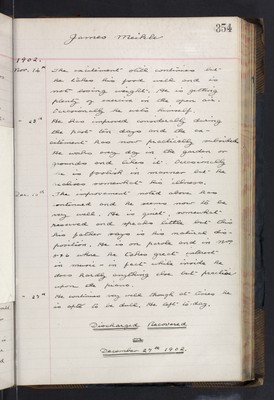 354
James Meikle
1902.
Nov. 14th The excitement still continues but
he takes his food well and is
not losing weight. He is getting
plenty of exercise in the open air.
Occasionally he wets himself.
" 28th He has improved considerably during
the past ten days and the ex-
citement has now practically subsided
He walks every day in the garden or
grounds and likes it. Occasionally
he is foolish in manner but he
realises somewhat his illness.
Dec. 12th The improvement noted above has
continued and he seems now to be
very well. He is quiet, somewhat
reserved and speaks little but this
his father says is his natural dis-
position. He is on parole and in
where he takes great interest
in music in fact while inside he
does hardly anything else but practise
upon the piano.
" 27th He continues very well though at times he
is apt to be dull. He left to-day.
Discharged Recovered
December 27th 1902.